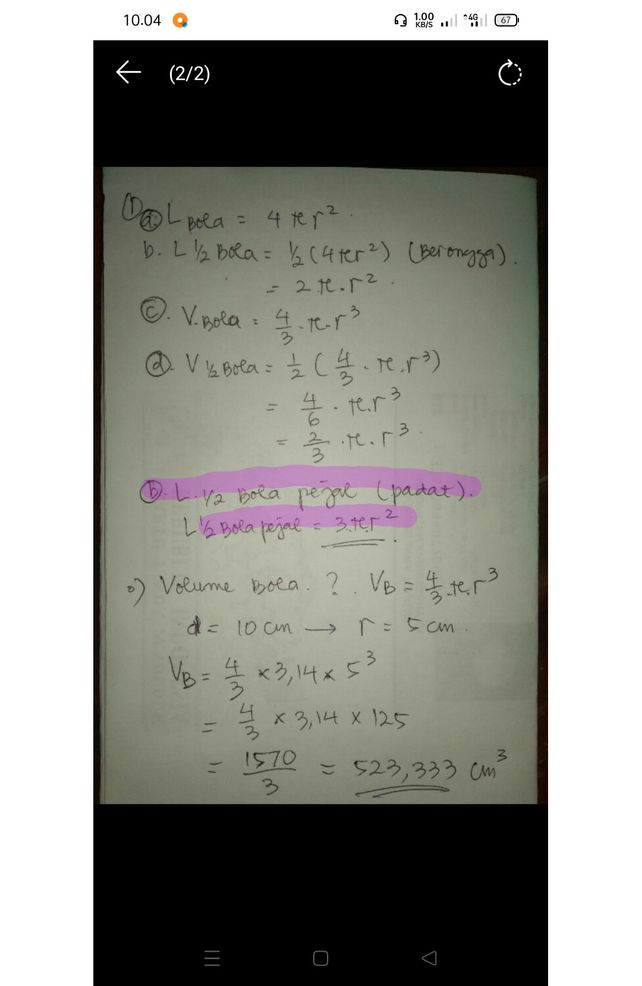 10.04 1.00 KB/S 4G 67
(2/2)
① ⓐ. L Bola = 4 π r²
b. L ½ Bola = ½ (4πr²) (Berongga).
= 2.π.r².
ⓒ. V.Bola = 4/3 .π.r³
ⓓ. V ½ Bola = 1/2 ( 4/3 . π.r³)
= 4/6 . π.r³
= 2/3 .π.r³.
ⓑ. L.½ Bola pejal (padat).
L ½ Bola pejal = 3.π.r².
o) Volume Bola. ?. VB = 4/3 .π.r³
d = 10 cm → r = 5 cm.
VB = 4/3 × 3,14 × 5³
= 4/3 × 3,14 × 125
= 1570/3 = 523,333 cm³